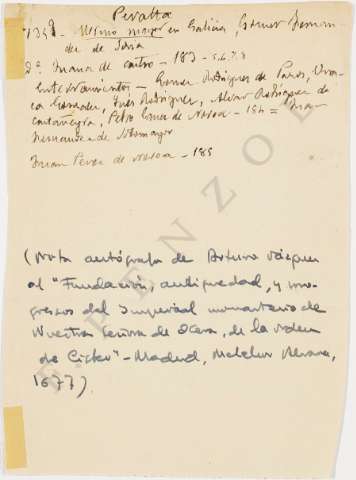 Peralta
1359 - Merino mayor en Galicia, Gomez Fernan-
dez de Soria
Dª Juana de Castro - 183 - 5.6.7.8
Enterramientos - Gomez Rodríguez de Paros, Urra-
ca González, Inés Rodríguez, Alvar Rodríguez de
Castañeyra, Pedro Gomez de Novoa - 184 = Juan
Fernandez de Sotomayor
Juan Perez de Novoa - 185
(Nota autógrafa de Arturo Vázquez
al "Fundación, antiguedad, y pro-
gressos del Imperial monasterio de
Nuestra Señora de Osera, de la orden
de Cister" - Madrid, Melchor Alvarez,
1677).
F. PENZOL